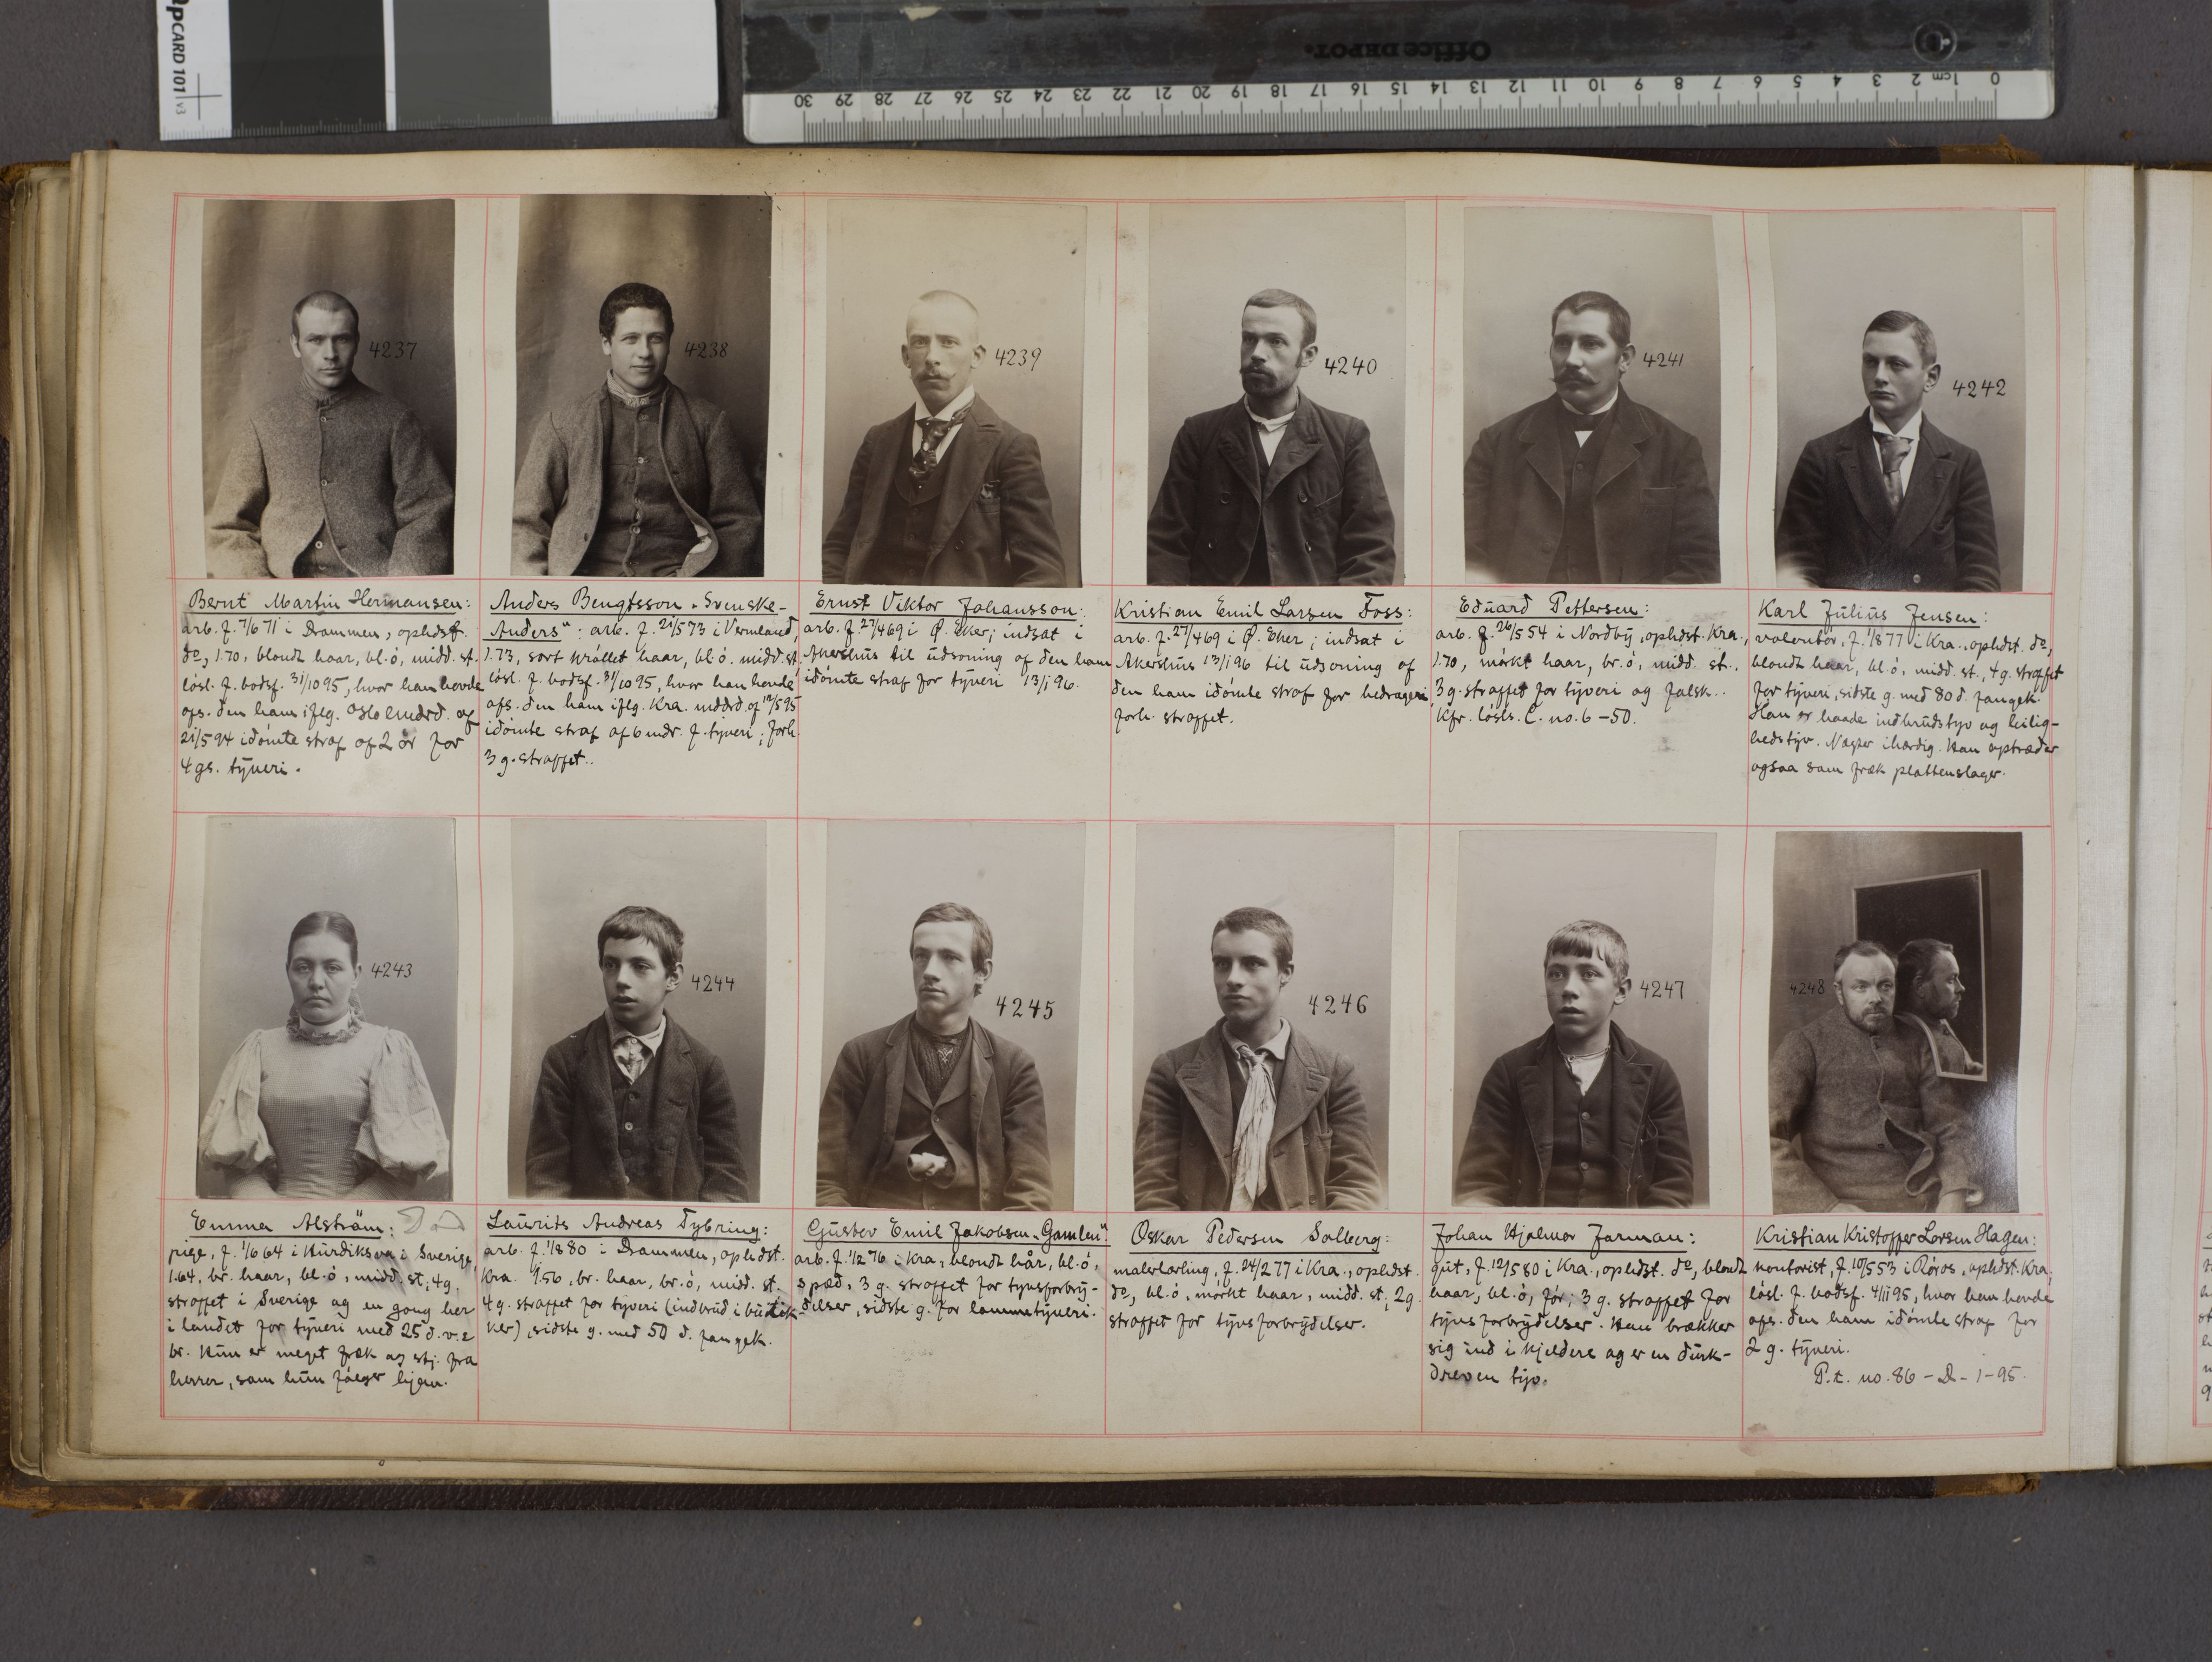 pCARD 101 v3
Office DEPOT.
30 29 28 27 26 25 24 23 22 21 20 19 18 17 16 15 14 13 12 11 10 9 8 7 6 5 4 3 2 1 cm 0
4237
4238
4239
4240
4241
4242
Bernt Martin Hermansen:
arb. f. 7/6 71 i Drammen, opholdst.
do, 1.70, blondt haar, bl. ö, midd. st.
lösl. f. bodsf. 31/10 95, hvor han havde
afs. den ham iflg. Oslo mddrd. af
21/5 94 idömte straf af 2 år for
4 gs. tyveri.
Anders Bengtsson „Svenske-
Anders“: arb. f. 21/5 73 i Vermland,
1.73, sort kröllet haar, bl. ö. midd. st.
lösl. f. bodsf. 31/10 95, hvor han havde
afs. den ham iflg. Kra. mddrd. af 12/5 95
idömte straf af 6 mdr. f. tyveri; forh.
3 g. straffet..
Ernst Viktor Johansson:
arb. f. 27/4 69 i Ø. Eker; indsat i
Akershus til udsoning af den ham
idömte straf for tyveri 13/1 96.
Kristian Emil Larsen Foss:
arb. f. 27/4 69 i Ø. Eker; indsat i
Akershus 13/1 96 til udsoning af
den ham idömte straf for bedrageri
forh. straffet.
Eduard Pettersen:
arb. f. 26/5 54 i Nordby, opholdst. Kra.,
1.70, mörkt haar, br. ö, midd. st.,
3 g. straffet for tyveri og falsk..
Kfr. lösls. C. no. 6 - 50.
Karl Julius Jensen:
volontör, f. 1/8 77 i Kra., opholdst. do,
blondt haar, bl. ö, midd. st., 4 g. straffet
for tyveri, sidste g. med 80 d. fængsl.
Han er baade indbrudstyv og leilig-
hedstyv. Nægter ihærdig. Han optræder
ogsaa som fræk plattenslager.
4243
4244
4245
4246
4247
4248
Emma Alström: Död
pige, f. 1/6 64 i Sverige,
1.64, br. haar, bl. ö, midd. st; 4 g.
straffet i Sverige og en gang her
i landet for tyveri med 25 d. v. &
br. Hun er meget fræk og stj. fra
herrer, som hun fölger hjem.
Laurids Andreas Tybring:
arb. f. 1/8 80 i Drammen, opholdst.
Kra. 1.56, br. haar, br. ö, midd. st.
4 g. straffet for tyveri (indbrud i butik-
ker), sidste g. med 50 d. fængsl.
Gustav Emil Jakobsen „Gamlen“
arb. f. 1/2 76 i Kra, blondt hår, bl. ö,
spæd, 3 g. straffet for tyvsforbry-
delser, sidste g. for lommetyveri.
Oskar Pedersen Solberg:
malerlærling, f. 24/2 77 i Kra., opholdst.
do, bl. ö, mörkt haar, midd. st, 2 g.
straffet for tyvsforbrydelser.
Johan Hjalmar Jarman:
gut, f. 12/5 80 i Kra., opholdst. do, blondt
haar, bl. ö, för; 3 g. straffet for
tyvsforbrydelser. Han brækker
sig ind i kjeldere og er en durk-
dreven tyv.
Kristian Kristoffer Larsen Hagen:
kontorist, f. 10/5 53 i Röros, opholdst. Kra,
lösl. f. bodsf. 4/11 95, hvor han havde
afs. den ham idömte straf for
2 g. tyveri.
P.t. no. 86 - D - 1 - 95.